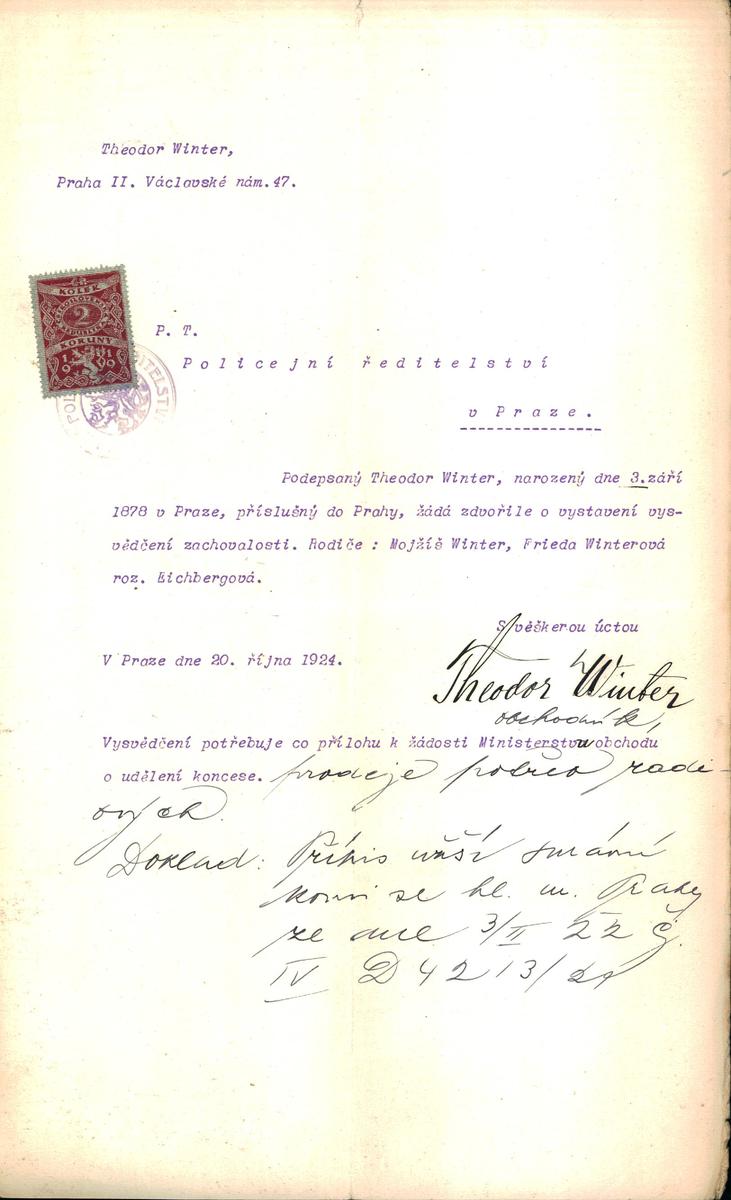 Theodor Winter,
Praha II. Václavské nám.47.
KOLEK
ČESKOSLOVENSKÁ
REPUBLIKA
2
KORUNY
1919
P. T.
Policejní ředitelství
v Praze.
Podepsaný Theodor Winter, narozený dne 3.září
1878 v Praze, příslušný do Prahy, žádá zdvořile o vystavení vys-
vědčení zachovalosti. Rodiče : Mojžíš Winter, Frieda Winterová
roz. Eichbergová.
S věškerou úctou
V Praze dne 20. října 1924.
Theodor Winter
obchodník,
Vysvědčení potřebuje co přílohu k žádosti Ministerstvu obchodu
o udělení koncese. prodeje potřeb radi-
ových.
Doklad: Přípis užší správní
komise hl. m. Prahy
ze dne 3/II 22 čj.
IV D 4213/